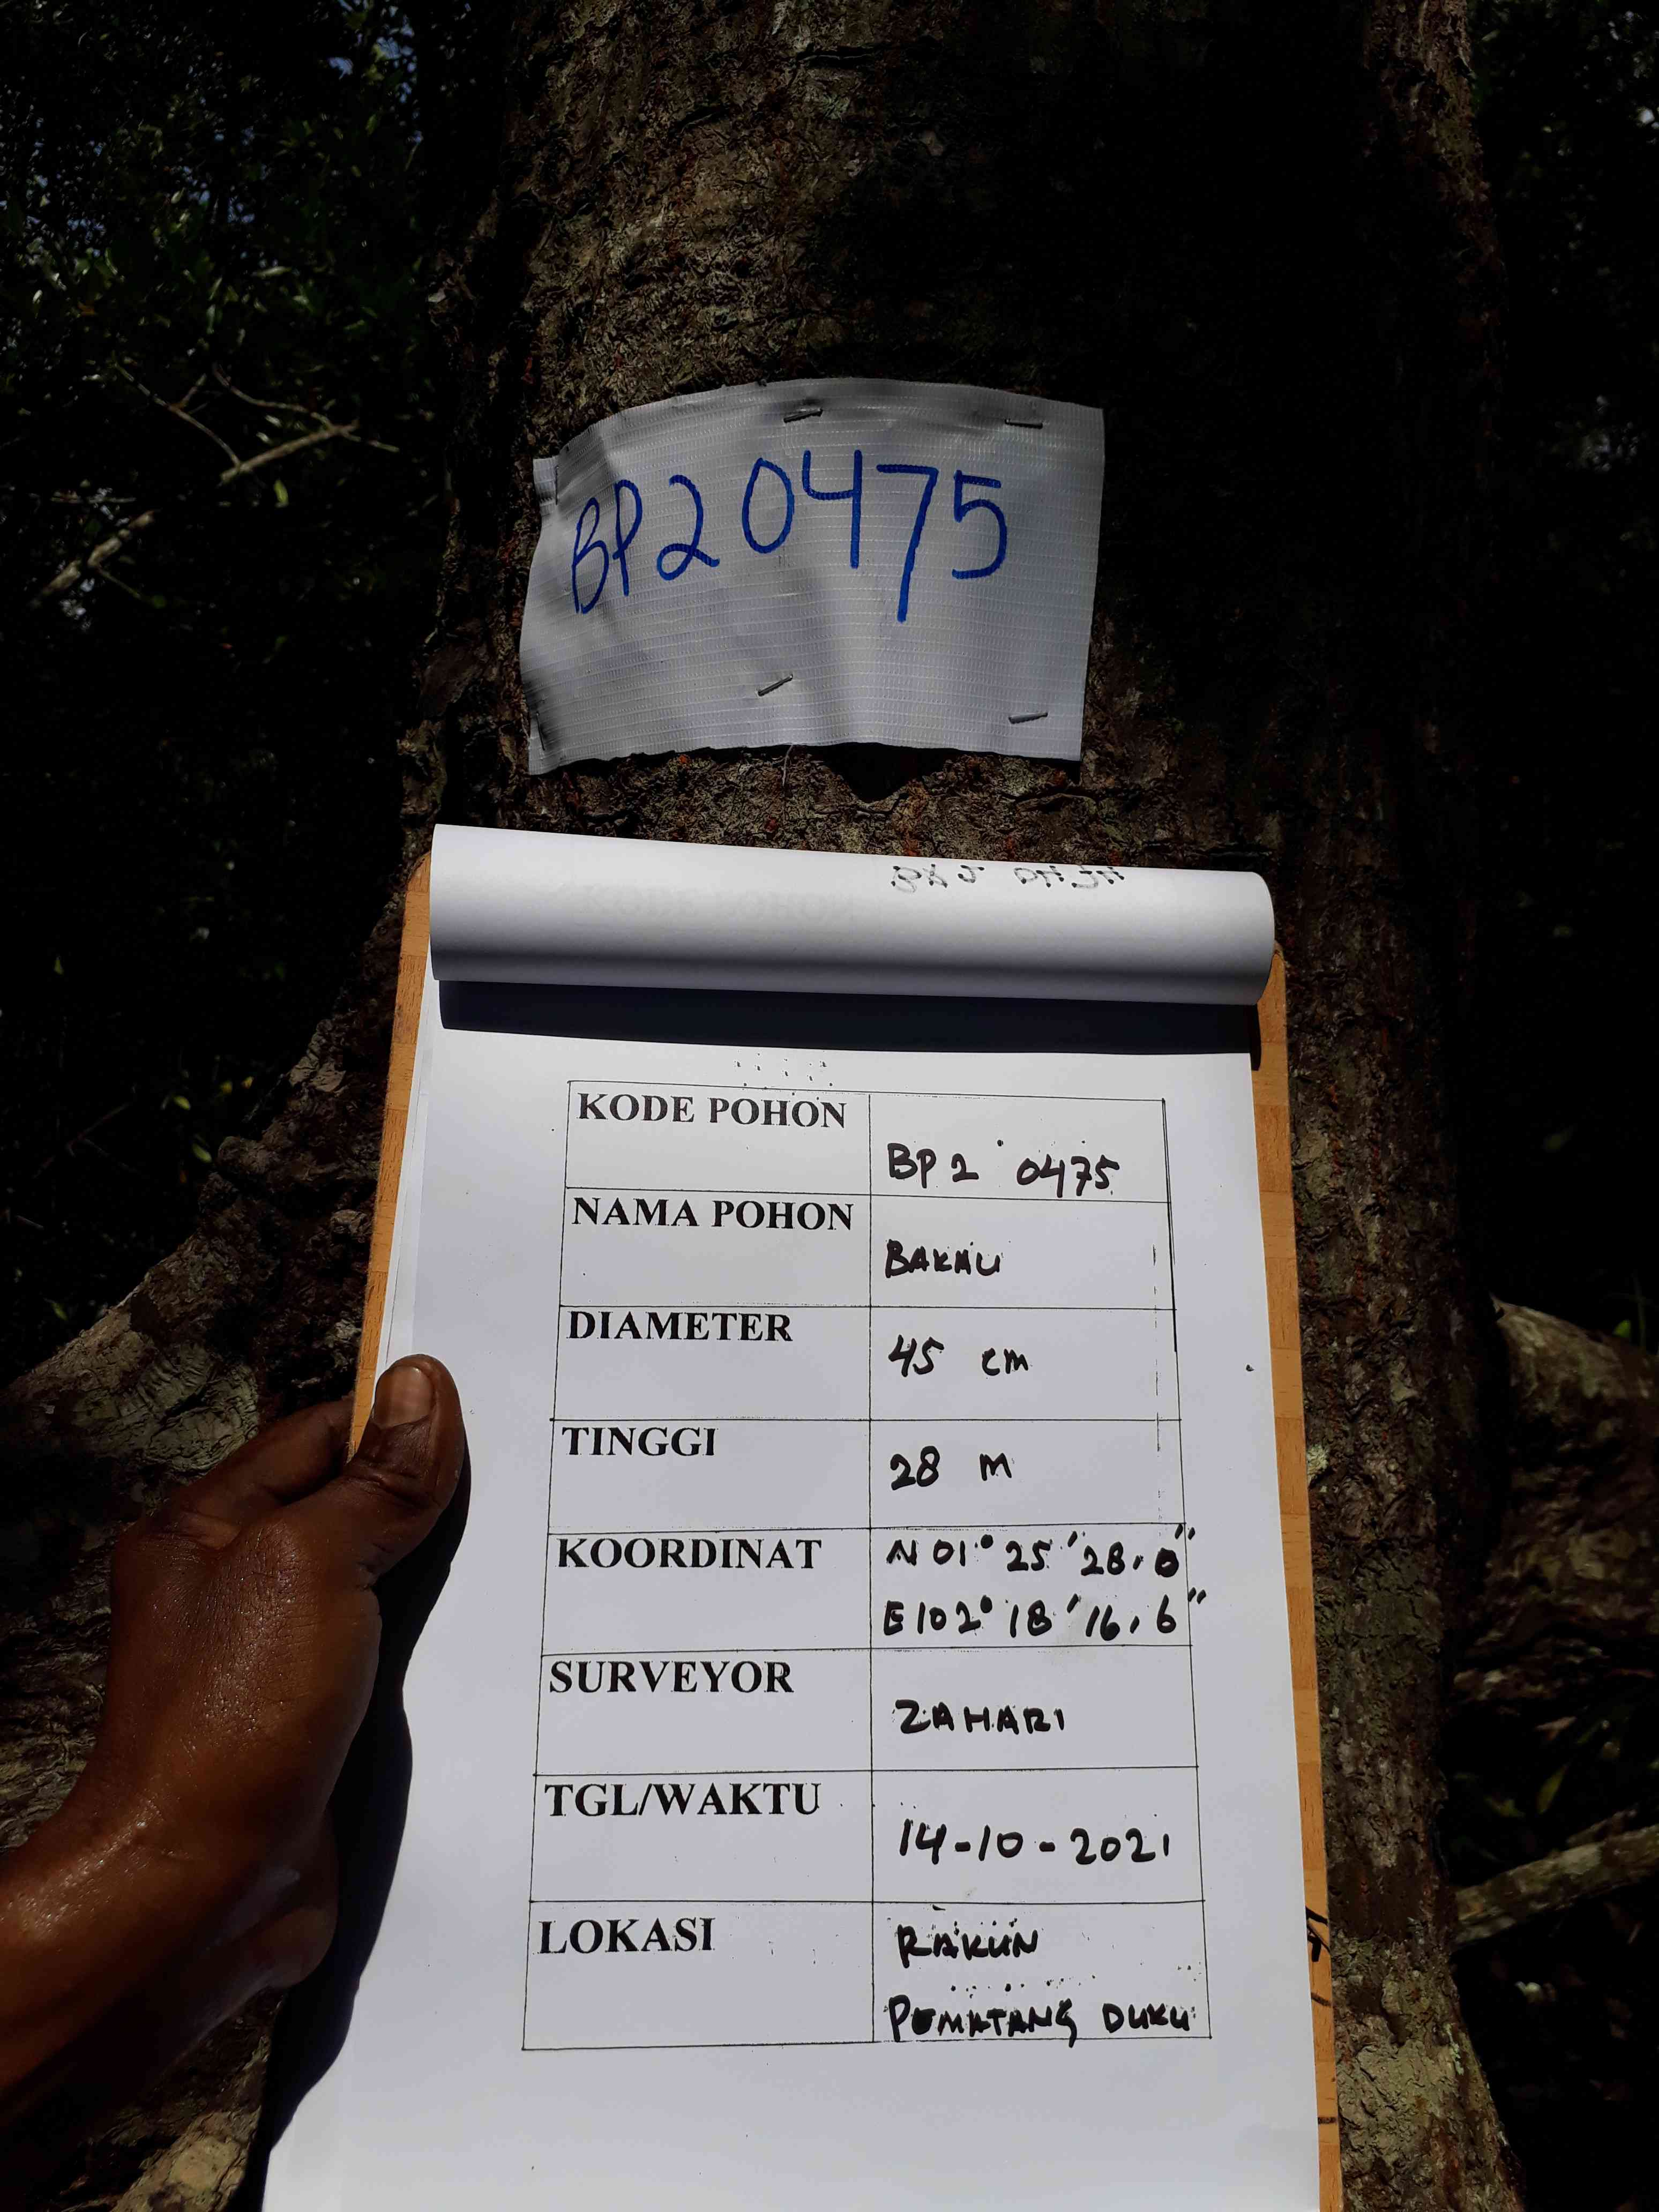 BP20475
KODE POHON
BP2 0475
NAMA POHON
BAKAU
DIAMETER
45 cm
TINGGI
28 m
KOORDINAT
N 01° 25 ' 28,0"
E 102° 18 ' 16,6"
SURVEYOR
ZAHARI
TGL/WAKTU
14-10-2021
LOKASI
RAKUN
PEMATANG DUKU